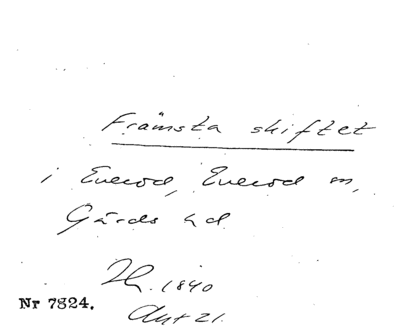 Främsta skiftet
i Everöd, Everöd sn,
Gärds hd
Th. 1840
Ant 21.
Nr 7824.